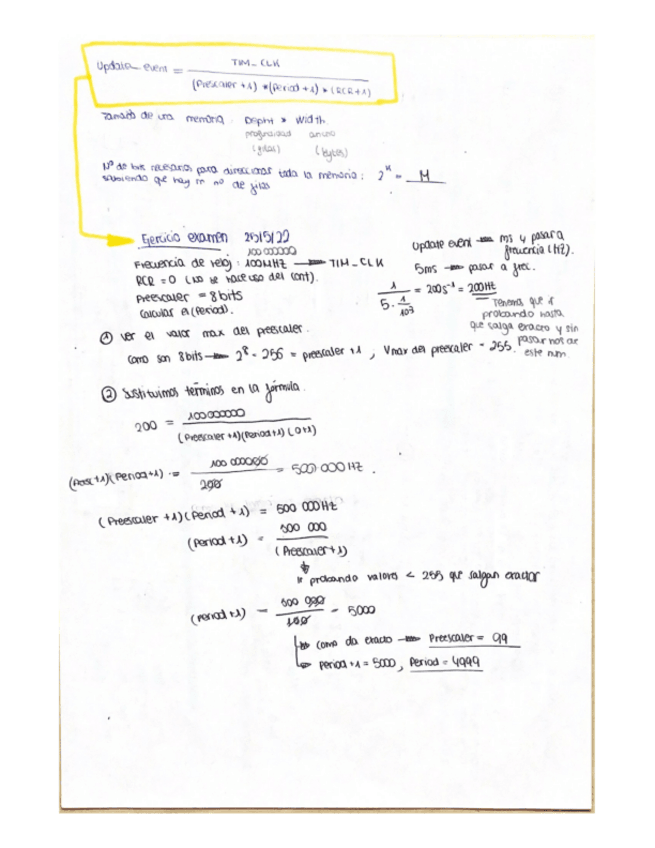 Update event = TIM_CLK / (Prescaler +1) * (Period +1) * (RCR +1)
Tamaño de una memoria: Depht * Width
profundidad ancho
(filas) (bytes)
Nº de bits necesarios para direccionar toda la memoria: 2^K = M
sabiendo que hay m nº de filas
Ejercicio examen 25/5/22
100 000000
Frecuencia de reloj: 100MHZ → TIM_CLK
RCR = 0 (No se hace uso del cont).
Preescaler = 8 bits
Calcular el (Period).
Update event → ms y pasar a frecuencia (HZ).
5ms → pasar a frec.
1 / 5·1/10³ = 200s⁻¹ = 200HZ
Tenemos que ir
probando hasta
que salga exacto y sin
pasarnos de
este num.
① Ver el valor max del preescaler.
Como son 8 bits → 2⁸ = 256 = preescaler +1, Vmax del preescaler = 255.
② Sustituimos términos en la fórmula.
200 = 100 000000 / (Preescaler +1)(Period+1)(0+1)
(Presc+1)(Period+1) = 100 000000 / 200 = 500 000 HZ.
(Preescaler +1)(Period +1) = 500 000HZ
(Period +1) = 500 000 / (Preescaler+1)
Ir probando valores < 255 que salgan exactos
(Period +1) = 500 000 / 100 = 5000
→ como da exacto → Preescaler = 99
→ Period +1 = 5000, Period = 4999